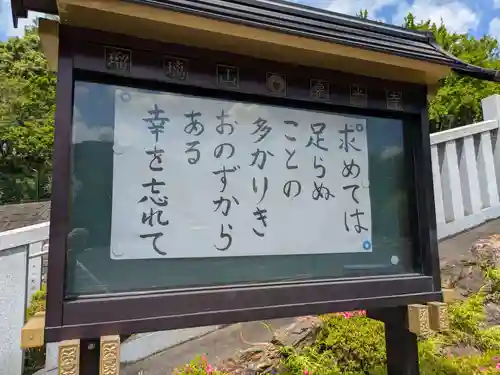 瑠璃山
寺
求めては
足らぬ
ことの
多かりき
おのずから
ある
幸を忘れて